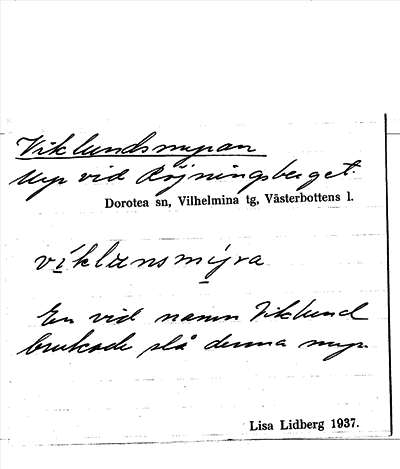 Viklundsmyran
Myr vid Röjningsberget.
Dorotea sn, Vilhelmina tg, Västerbottens l.
víklansmýra
En vid namn Viklund
brukade slå denna myr.
Lisa Lidberg 1937.